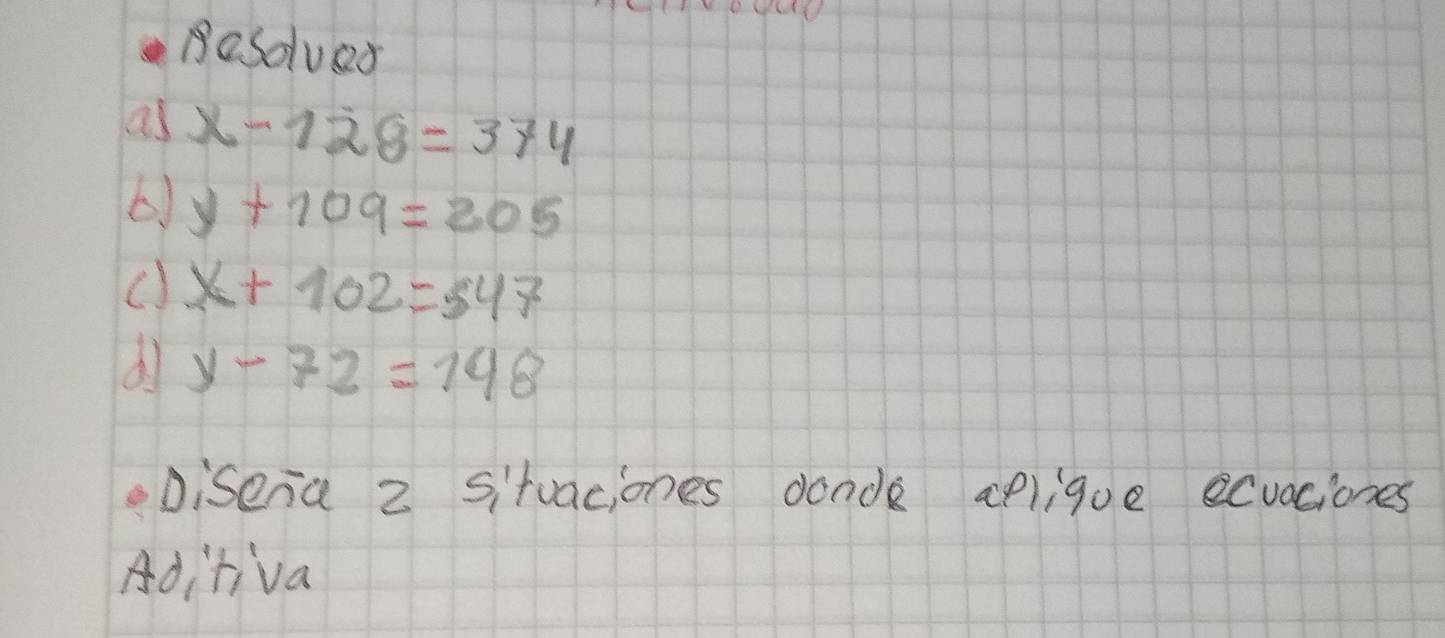 • Resolver
a) x - 128 = 374
b) y + 109 = 205
c) x + 102 = 547
d) y - 72 = 148
• Diseña 2 situaciones donde aplique ecuaciones
Aditiva